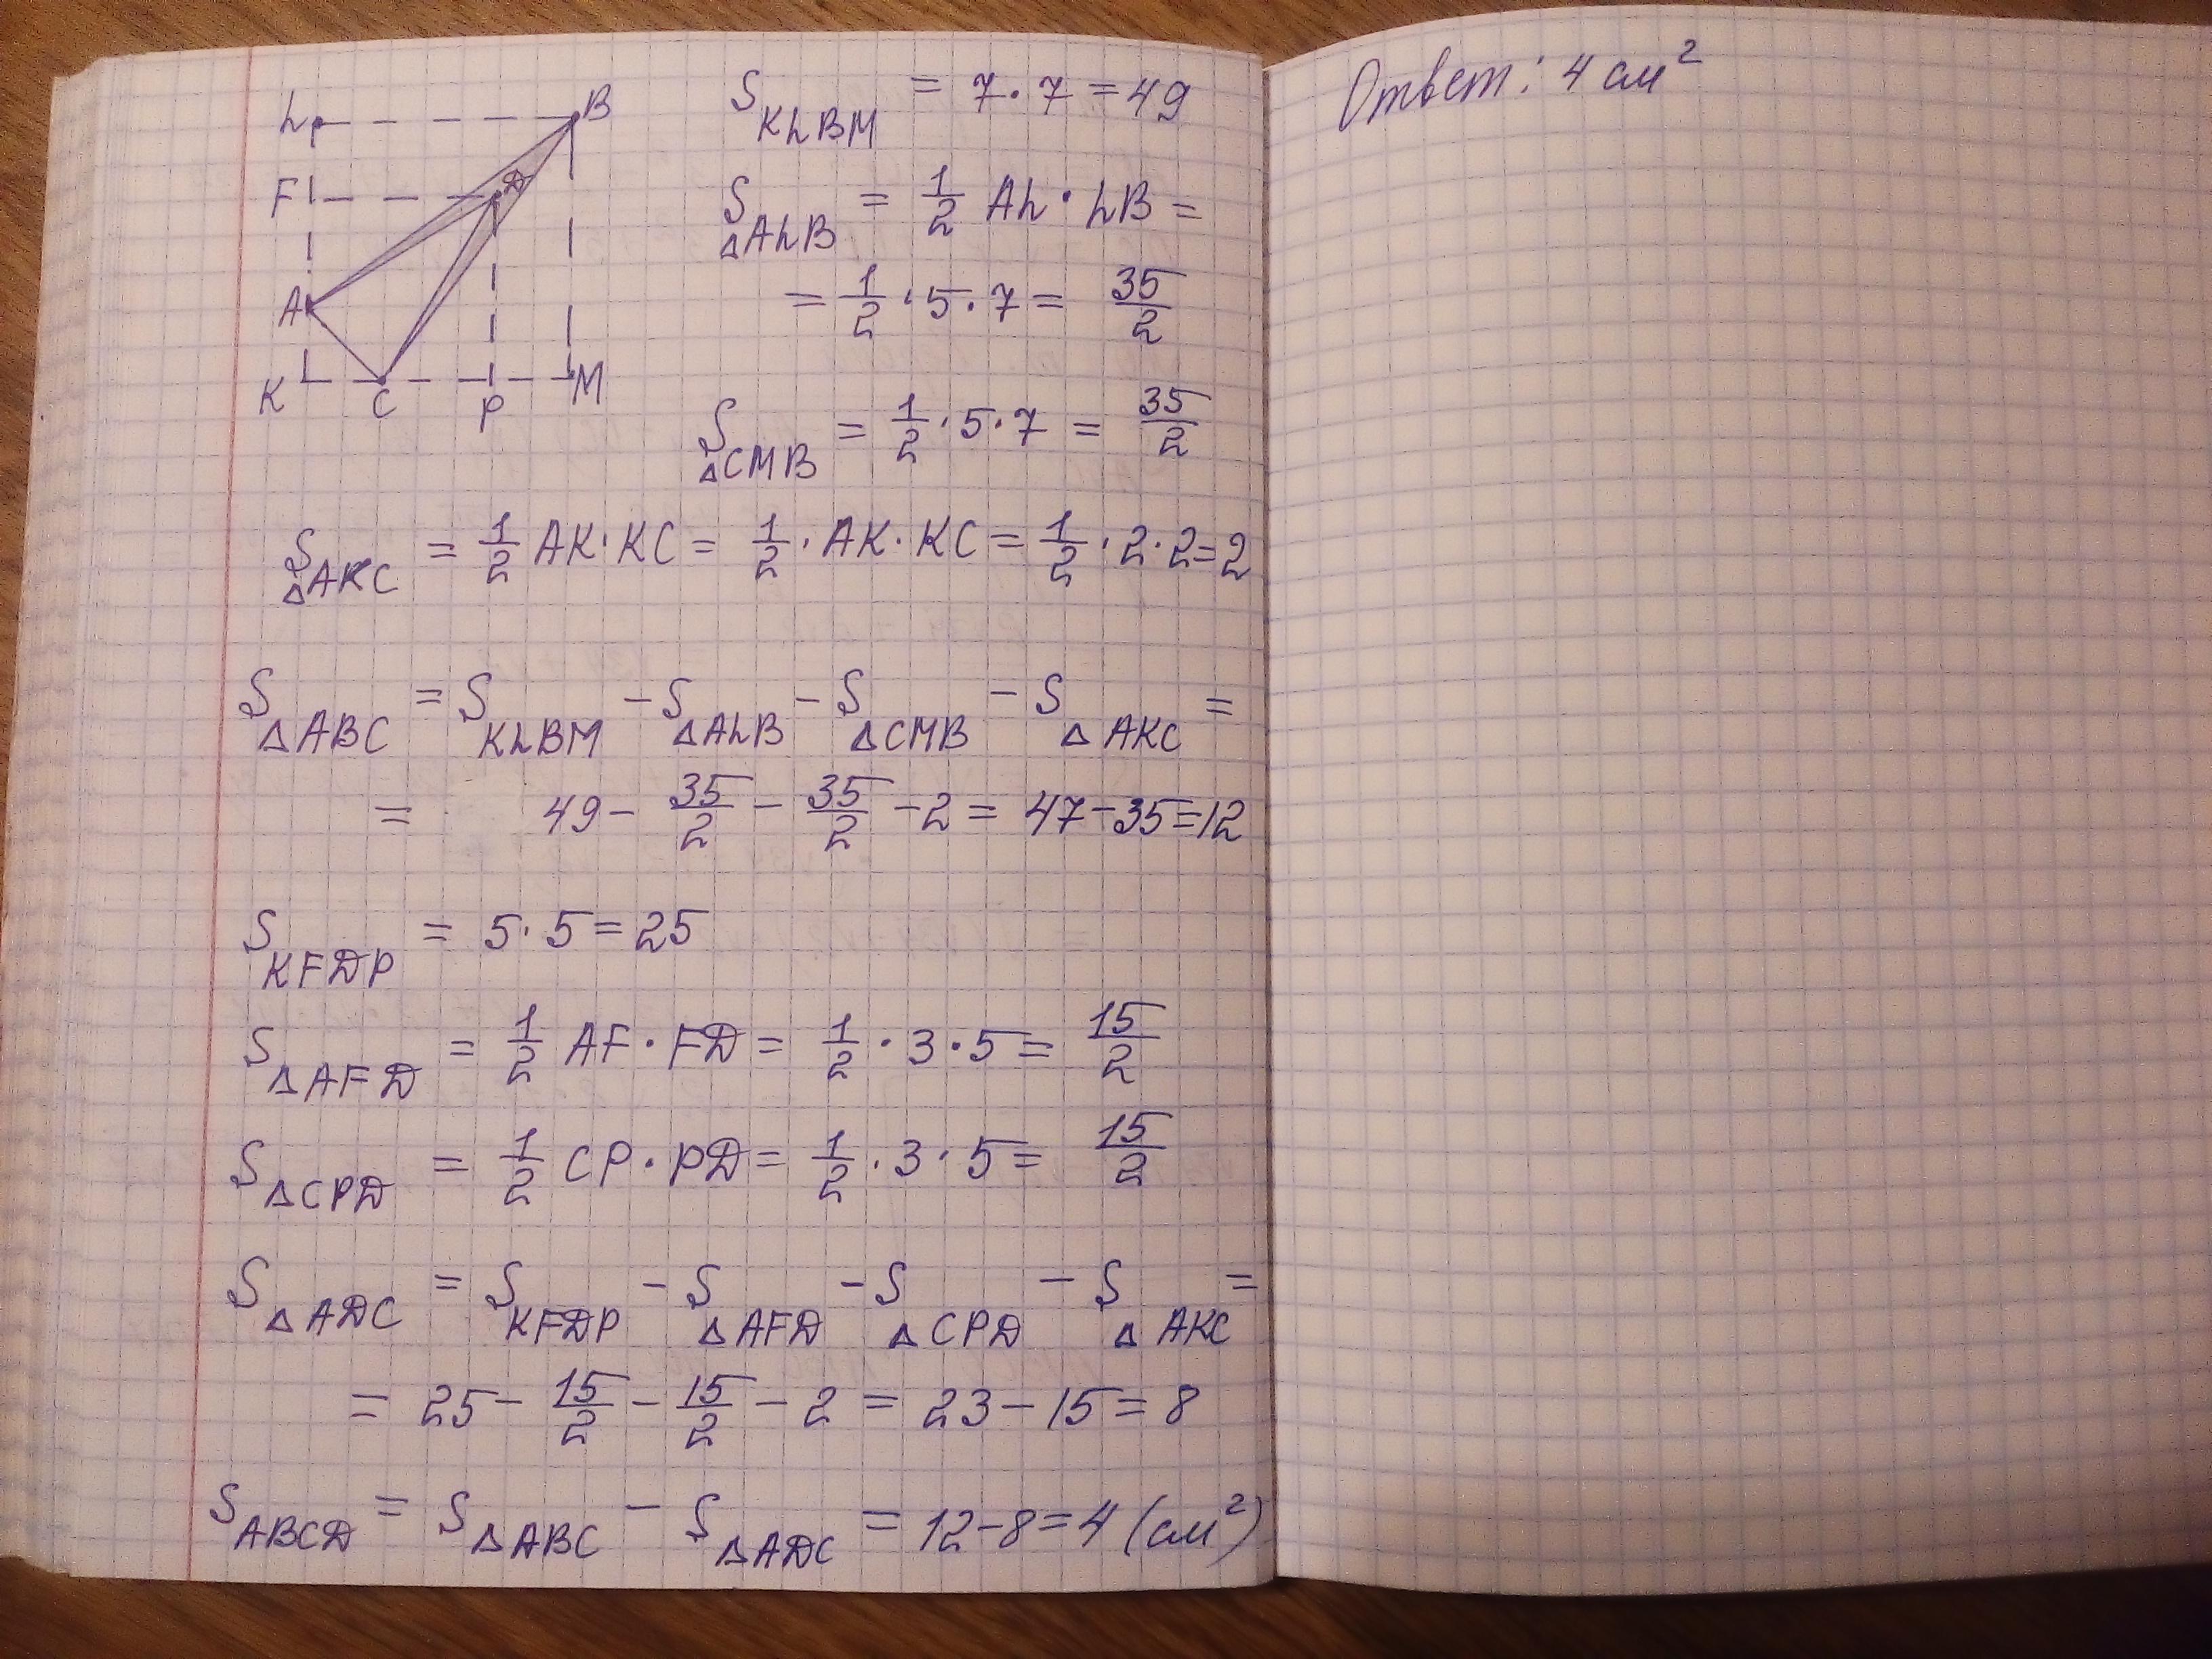 L B
F D
A
K C P M
S KLBM = 7·7 = 49
S ΔALB = 1/2 AL·LB =
= 1/2·5·7 = 35/2
S ΔCMB = 1/2·5·7 = 35/2
S ΔAKC = 1/2 AK·KC = 1/2·AK·KC = 1/2·2·2=2
S ΔABC = S KLBM - S ΔALB - S ΔCMB - S ΔAKC =
= 49 - 35/2 - 35/2 - 2 = 47-35=12
S KFDP = 5·5=25
S ΔAFD = 1/2 AF·FD = 1/2·3·5 = 15/2
S ΔCPD = 1/2 CP·PD = 1/2·3·5 = 15/2
S ΔADC = S KFDP - S ΔAFD - S ΔCPD - S ΔAKC =
= 25 - 15/2 - 15/2 - 2 = 23-15=8
S ABCD = S ΔABC - S ΔADC = 12-8=4 (см²)
Ответ: 4 см²